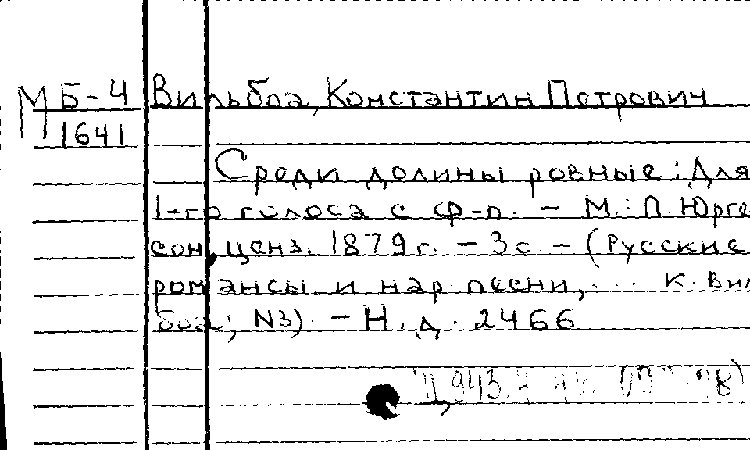 М Б-4 Вильбоа, Константин Петрович
1641
Среди долины ровные: Для
1-го голоса с ф-п. - М.: П. Юрге
сон, ценз. 1879 г. - 3 с. - (Русские
романсы и нар. песни, ... К. Вил
боа; N3). - Н. д. 2466